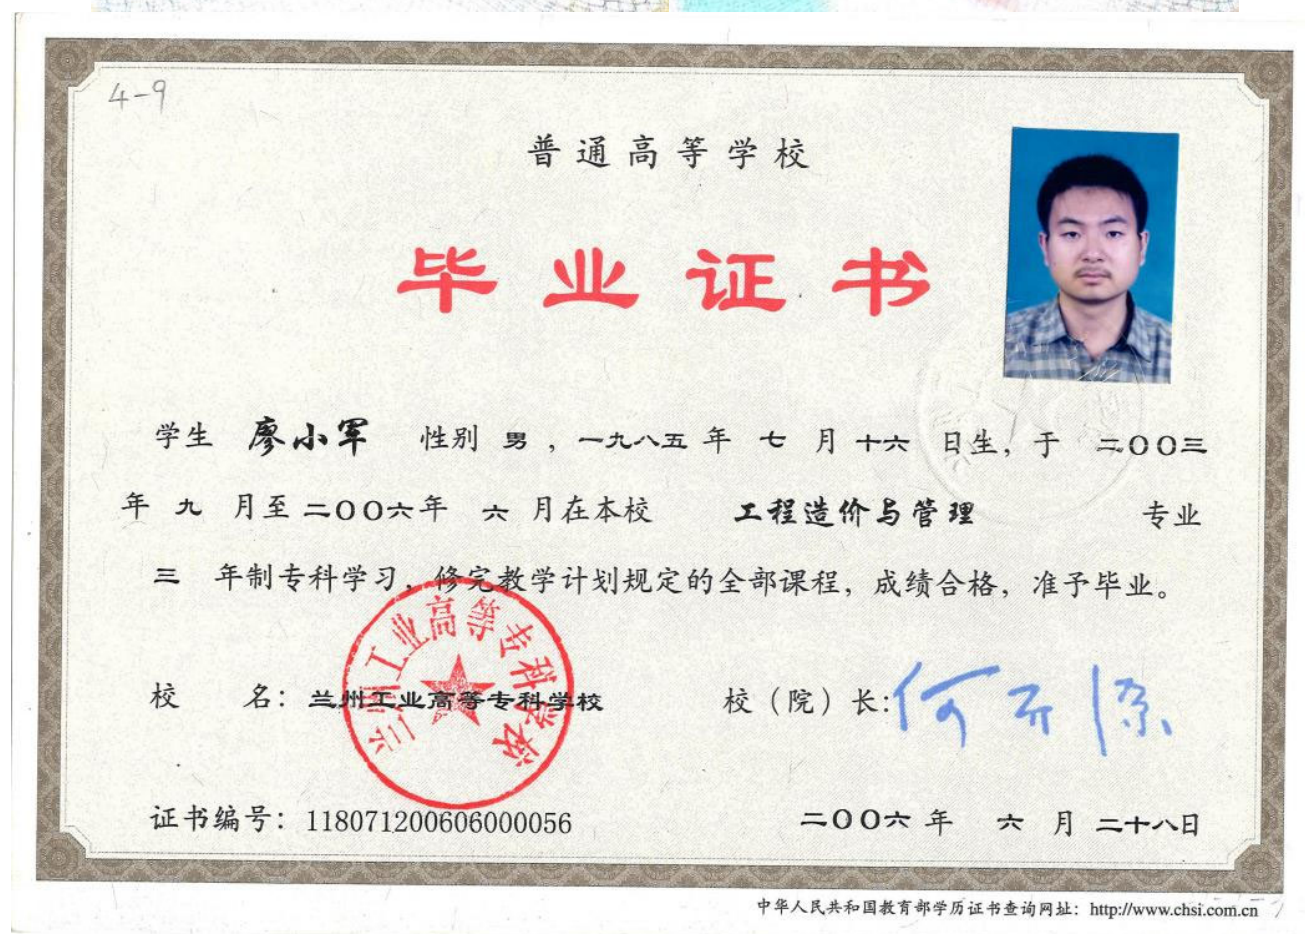 4-9
普通高等学校
毕业证书
学生 廖小军 性别 男，一九八五年 七 月 十六 日生，于 二〇〇三
年 九 月至 二〇〇六年 六 月在本校 工程造价与管理 专业
三 年制专科学习，修完教学计划规定的全部课程，成绩合格，准予毕业。
兰州工业高等专科学校
校 名：兰州工业高等专科学校 校（院）长：
证书编号：118071200606000056 二〇〇六年 六 月 二十八日
中华人民共和国教育部学历证书查询网址：http://www.chsi.com.cn